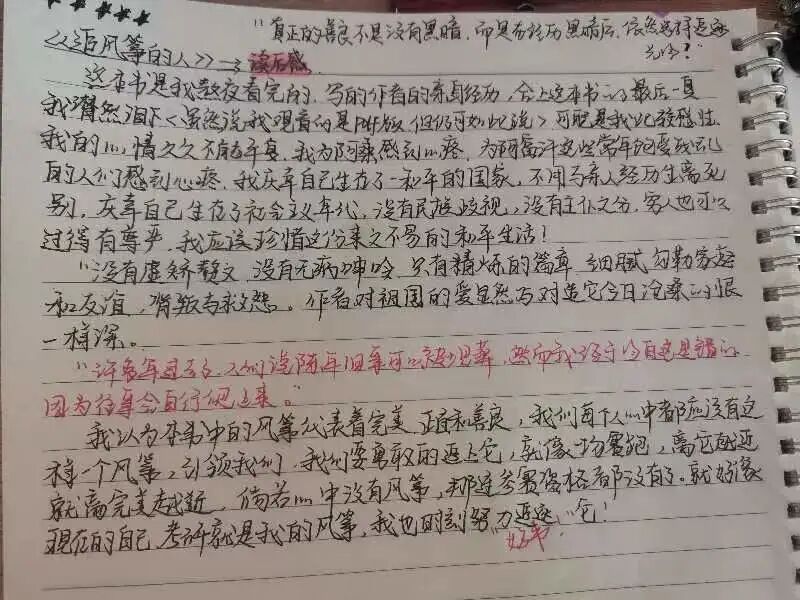 "真正的善良不是没有黑暗,而是在经历黑暗后,依然选择追逐
光明?"
《追风筝的人》→读后感
这本书是我熬夜看完的,写的作者的亲身经历,合上这本书的最后一页
我潸然泪下<虽然说我观看的是PDF版,但仍可如此说>可能是我比较感性
我的心情久久不能平复,我为阿桑感到心疼,为阿富汗这些常年饱受战乱
的人们感到心疼,我庆幸自己生在了一和平的国家,不用与亲人经历生离死
别,庆幸自己生在了社会主义年代,没有民族歧视,没有主仆之分,穷人也可以
过得有尊严,我应该珍惜这份来之不易的和平生活!
"没有虚矫赘文,没有无病呻吟,只有精炼的篇章,细腻勾勒家庭
和友谊,背叛与救赎。作者对祖国的爱显然与对造它今日沧桑的恨
一样深。
"许多年过去了,人们说陈年旧事可以被埋葬,然而我终于明白这是错的
因为往事会自行爬上来。"
我认为本书中的风筝代表着完美 正直和善良,我们每个人心中都应该有这
样一个风筝,引领我们,我们要勇敢的追上它,就像一场赛跑,离它越近
就离完美越近,倘若心中没有风筝,那连参赛资格都没有了。就好像
现在的自己,考研就是我的风筝,我也时刻努力"追逐"它!